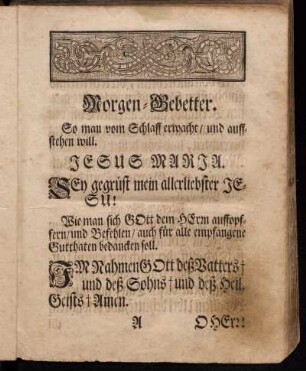 Morgen-Gebetter.
So man vom Schlaff erwacht / und auff-
stehen will.
JESUS MARJA.
SEy gegrüst mein allerliebster JE-
SU!
Wie man sich GOtt dem HErrn auffopf-
fern / und Befehlen / auch für alle empfangene
Gutthaten bedancken soll.
IM Nahmen GOtt deß Vatters †
und deß Sohns † und deß Heil.
Geists † Amen.
A O HErr